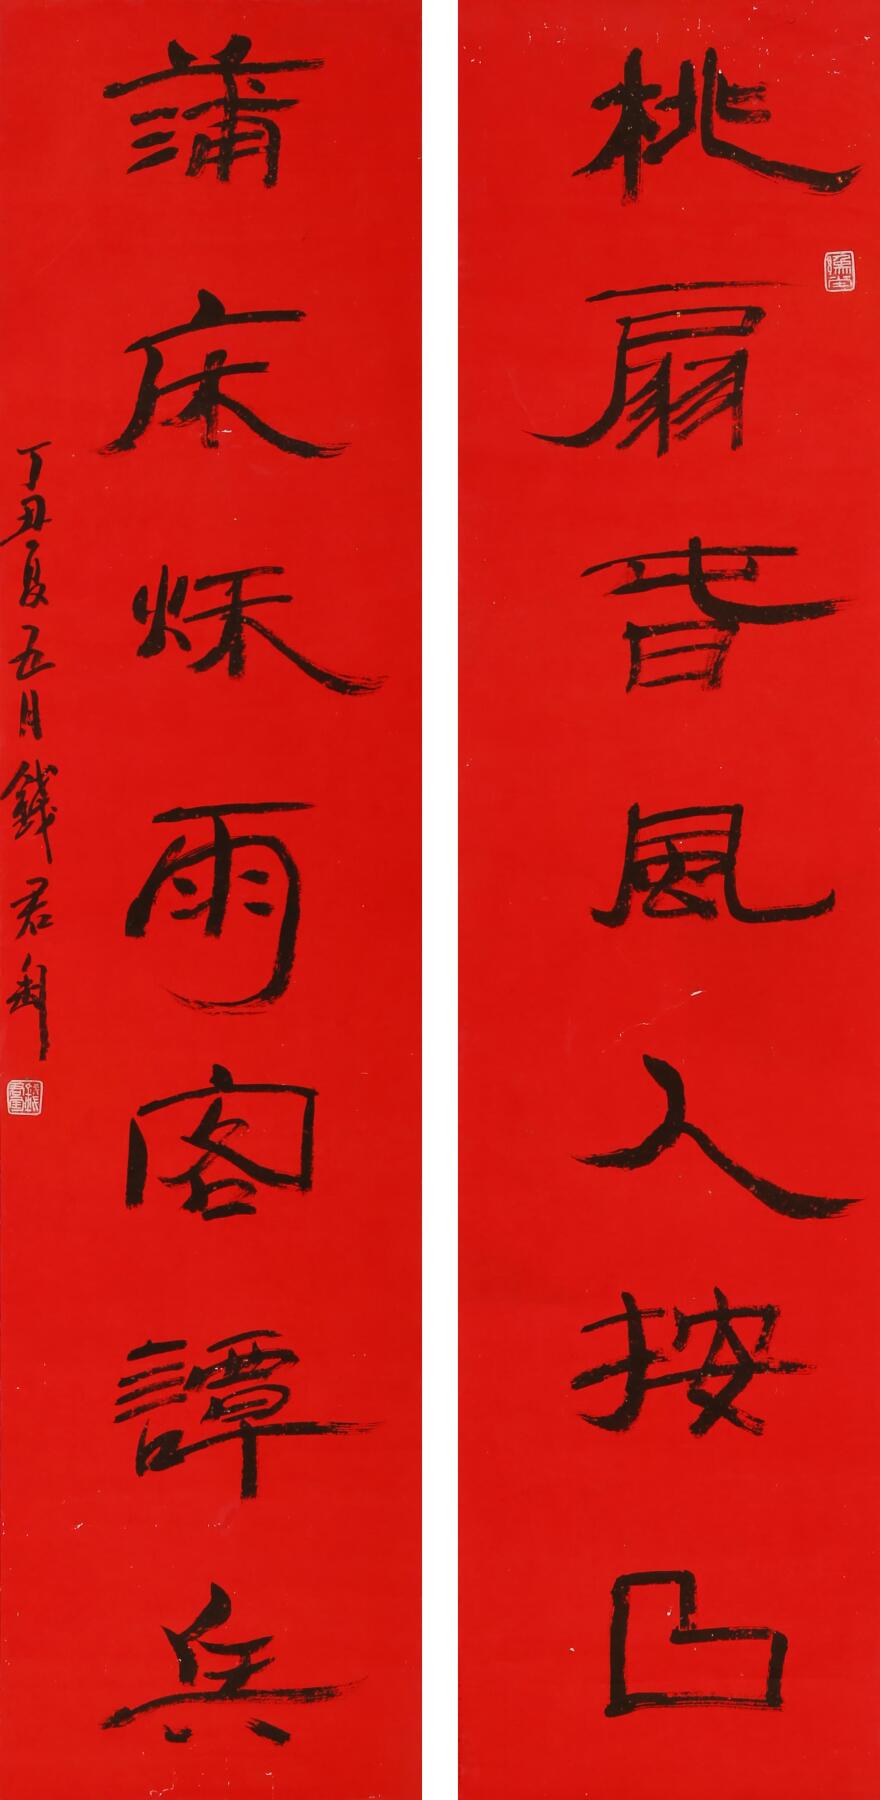 桃扇旾風人按曲
蒲床秌雨客譚兵
丁丑夏五月錢君匋